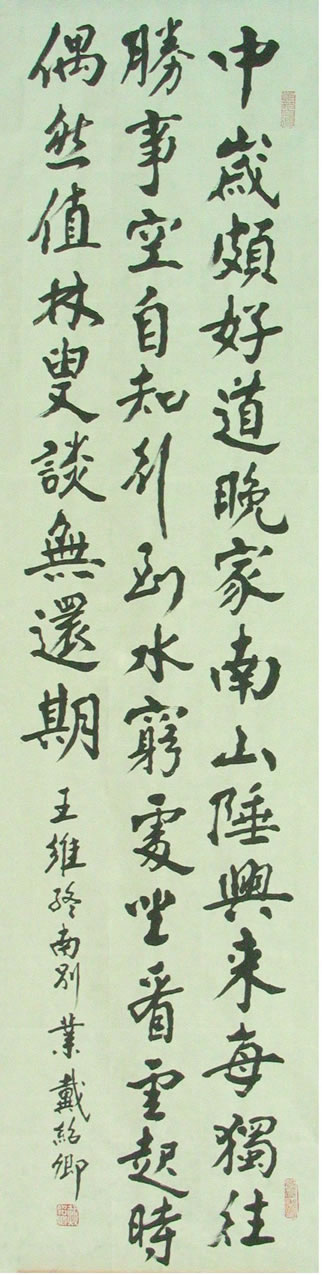 中歲頗好道晚家南山陲興來每獨往
勝事空自知行到水窮處坐看雲起時
偶然值林叟談無還期
王維終南別業戴紹卿